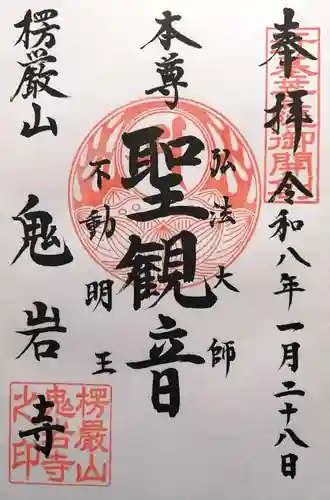 奉拝
令和八年一月二十八日
本尊
弘法大師
聖観音
不動明王
楞厳山
鬼岩寺
楞厳山
鬼岩寺
之印